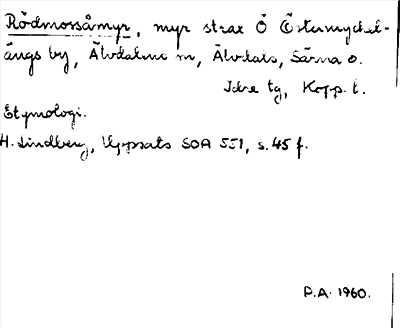 Rödmossåmyr, myr strax Ö Östermyckel-
ängs by, Älvdalens sn, Älvdals, Särna o.
Idre tg, Kopp. l.
Etymologi.
H. Lindberg, Uppsats SOA 551, s. 45 f.
P.A. 1960.